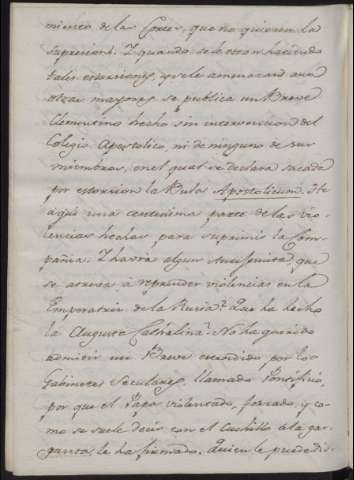 miento de las Cortes, que no quieren la
supresion. Y quando se le estan haciendo
tales extorciones, y se le amenazan aun
otras mayores se publica un Breve
Clementino hecho sin intervencion del
Colegio Apostolico, ni de ninguno de sus
miembros, en el qual se declara sacada
por extorcion la Bula Apostolicum. He
aqui una centesima parte de las vio-
lencias hechas para suprimir la Com-
pañia. Y havrá algun que
se atreva á reprender violencias en la
Emperatriz de la Rusia? Que ha hecho
la Augusta Catralina? No ha querido
admitir un Breve extendido por los
Gabinetes Seculares, llamado Pontificio,
por que el Papa violentado, forzado, y co-
mo se suele decir con el cuchillo á la gar-
ganta, le ha firmado. Quien le puede dis-